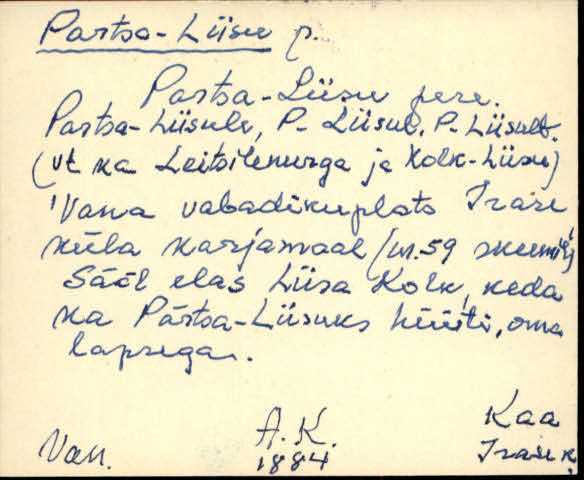 Partsa-Liisu p.
Partsa-Liisu pere.
Partsa-Liisule, P-Liisul, P-Liisult.
(vt ka Leitsilenurga ja Kolk-Liisu)
Vana vabadikuplats Irase
küla karjamaal (nr. 59 skeemil)
Sääl elas Liisa Kolk, keda
ka Pärtsa-Liisuks hüüti, oma
lapsega.
Van.
A.K.
1884
Kaa
Irase k.